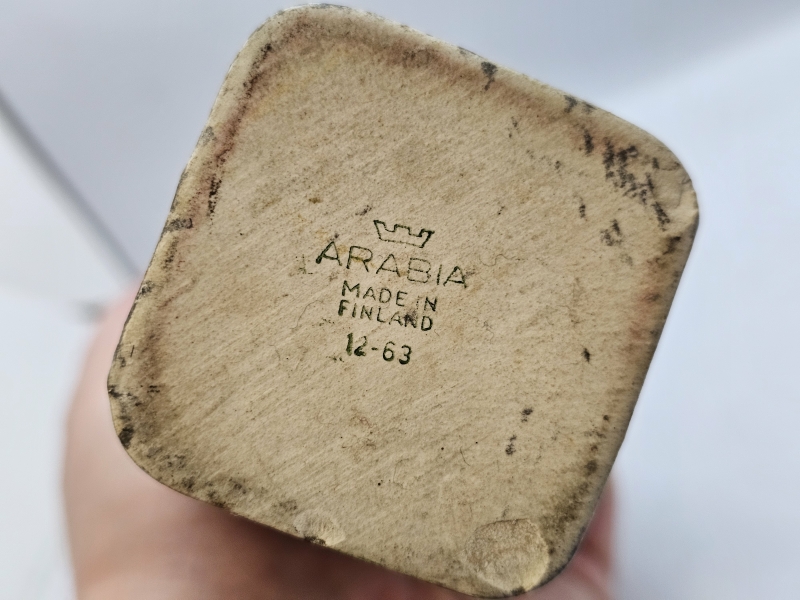 ARABIA
MADE IN
FINLAND
12-63